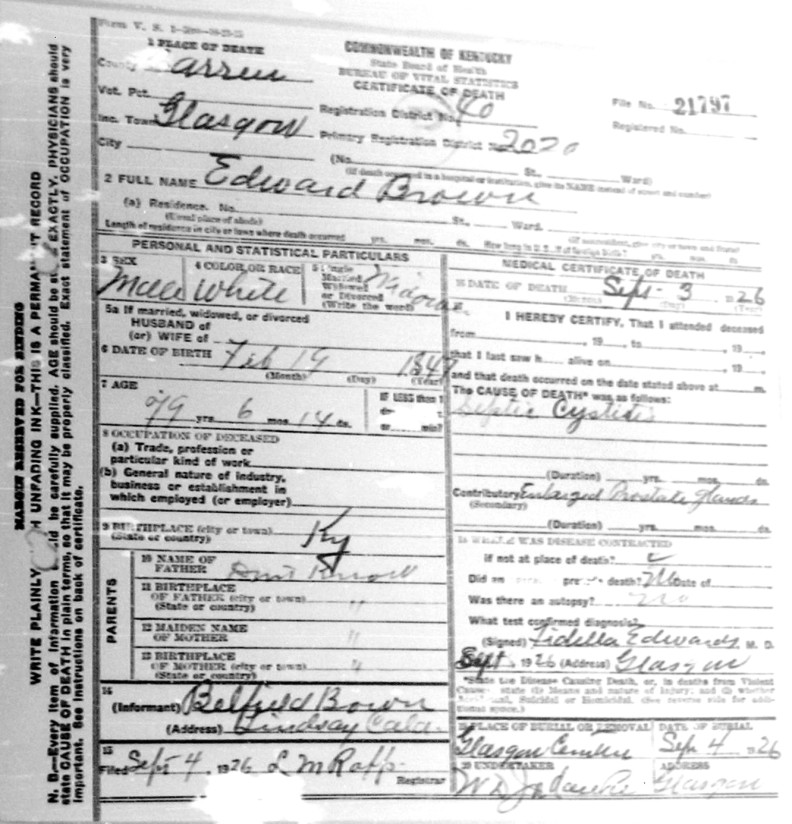 Form V. S.
COMMONWEALTH OF KENTUCKY
State Board of Health
BUREAU OF VITAL STATISTICS
CERTIFICATE OF DEATH
1 PLACE OF DEATH
County Barren
Vot. Pct. Registration District No. 40
File No. 21797
Inc. Town Glasgow Primary Registration District No. 2020
Registered No.
City (No. St., Ward)
(If death occurred in a hospital or institution, give its NAME instead of street and number)
2 FULL NAME Edward Brown
(a) Residence. No. St., Ward.
(Usual place of abode) (If nonresident, give city or town and State)
Length of residence in city or town where death occurred yrs. mos. ds. How long in U. S., if of foreign birth? yrs. mos. ds.
PERSONAL AND STATISTICAL PARTICULARS
3 SEX 4 COLOR OR RACE 5 Single
Married
Widowed
or Divorced
(Write the word)
Male White
5a If married, widowed, or divorced
HUSBAND of
(or) WIFE of
6 DATE OF BIRTH Feb 19 1847
(Month) (Day) (Year)
7 AGE IF LESS than 1
79 yrs. 6 mos. 14 ds. or min?
8 OCCUPATION OF DECEASED
(a) Trade, profession or
particular kind of work
(b) General nature of industry,
business or establishment in
which employed (or employer)
9 BIRTHPLACE (city or town)
(State or country) Ky
PARENTS
10 NAME OF
FATHER Dont Know
11 BIRTHPLACE
OF FATHER (city or town)
(State or country) "
12 MAIDEN NAME
OF MOTHER "
13 BIRTHPLACE
OF MOTHER (city or town)
(State or country) "
14
(Informant) Belfield Bown
(Address) Lindsay Cala.
15
Filed Sept 4, 1926 L M Rapp
Registrar
MEDICAL CERTIFICATE OF DEATH
16 DATE OF DEATH Sept- 3 1926
I HEREBY CERTIFY, That I attended deceased
from 19 to 19
that I last saw h alive on 19
and that death occurred on the date stated above at m.
The CAUSE OF DEATH* was as follows:
Septic Cystitis
(Duration) yrs. mos. ds.
Contributory Enlarged Prostate Glands
(Secondary)
(Duration) yrs. mos. ds.
18 WHERE WAS DISEASE CONTRACTED
if not at place of death?
Did an precede death? No Date of
Was there an autopsy? No
What test confirmed diagnosis?
(Signed) Fidella Edwards, M. D.
Sept, 1926 (Address) Glasgow
*State the Disease Causing Death, or, in deaths from Violent
Causes, state (1) Means and nature of Injury; and (2) whether
Accidental, Suicidal or Homicidal. (See reverse side for additional space.)
19 PLACE OF BURIAL OR REMOVAL DATE OF BURIAL
Glasgow Sep 4 1926
20 UNDERTAKER ADDRESS
Glasgow
MARGIN RESERVED FOR BINDING
WRITE PLAINLY WITH UNFADING INK—THIS IS A PERMANENT RECORD
N. B.—Every item of information should be carefully supplied. AGE should be stated EXACTLY. PHYSICIANS should
state CAUSE OF DEATH in plain terms, so that it may be properly classified. Exact statement of OCCUPATION is very
important. See instructions on back of certificate.